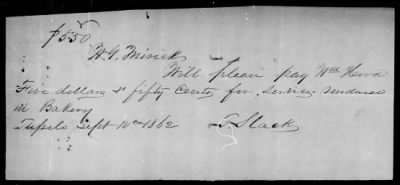 $5.50
W. G. Minick
Will please pay Wm
Five dollars & fifty Cents for services rendered
in Bakery
Tupelo Sept 10th 1862 T. Slack